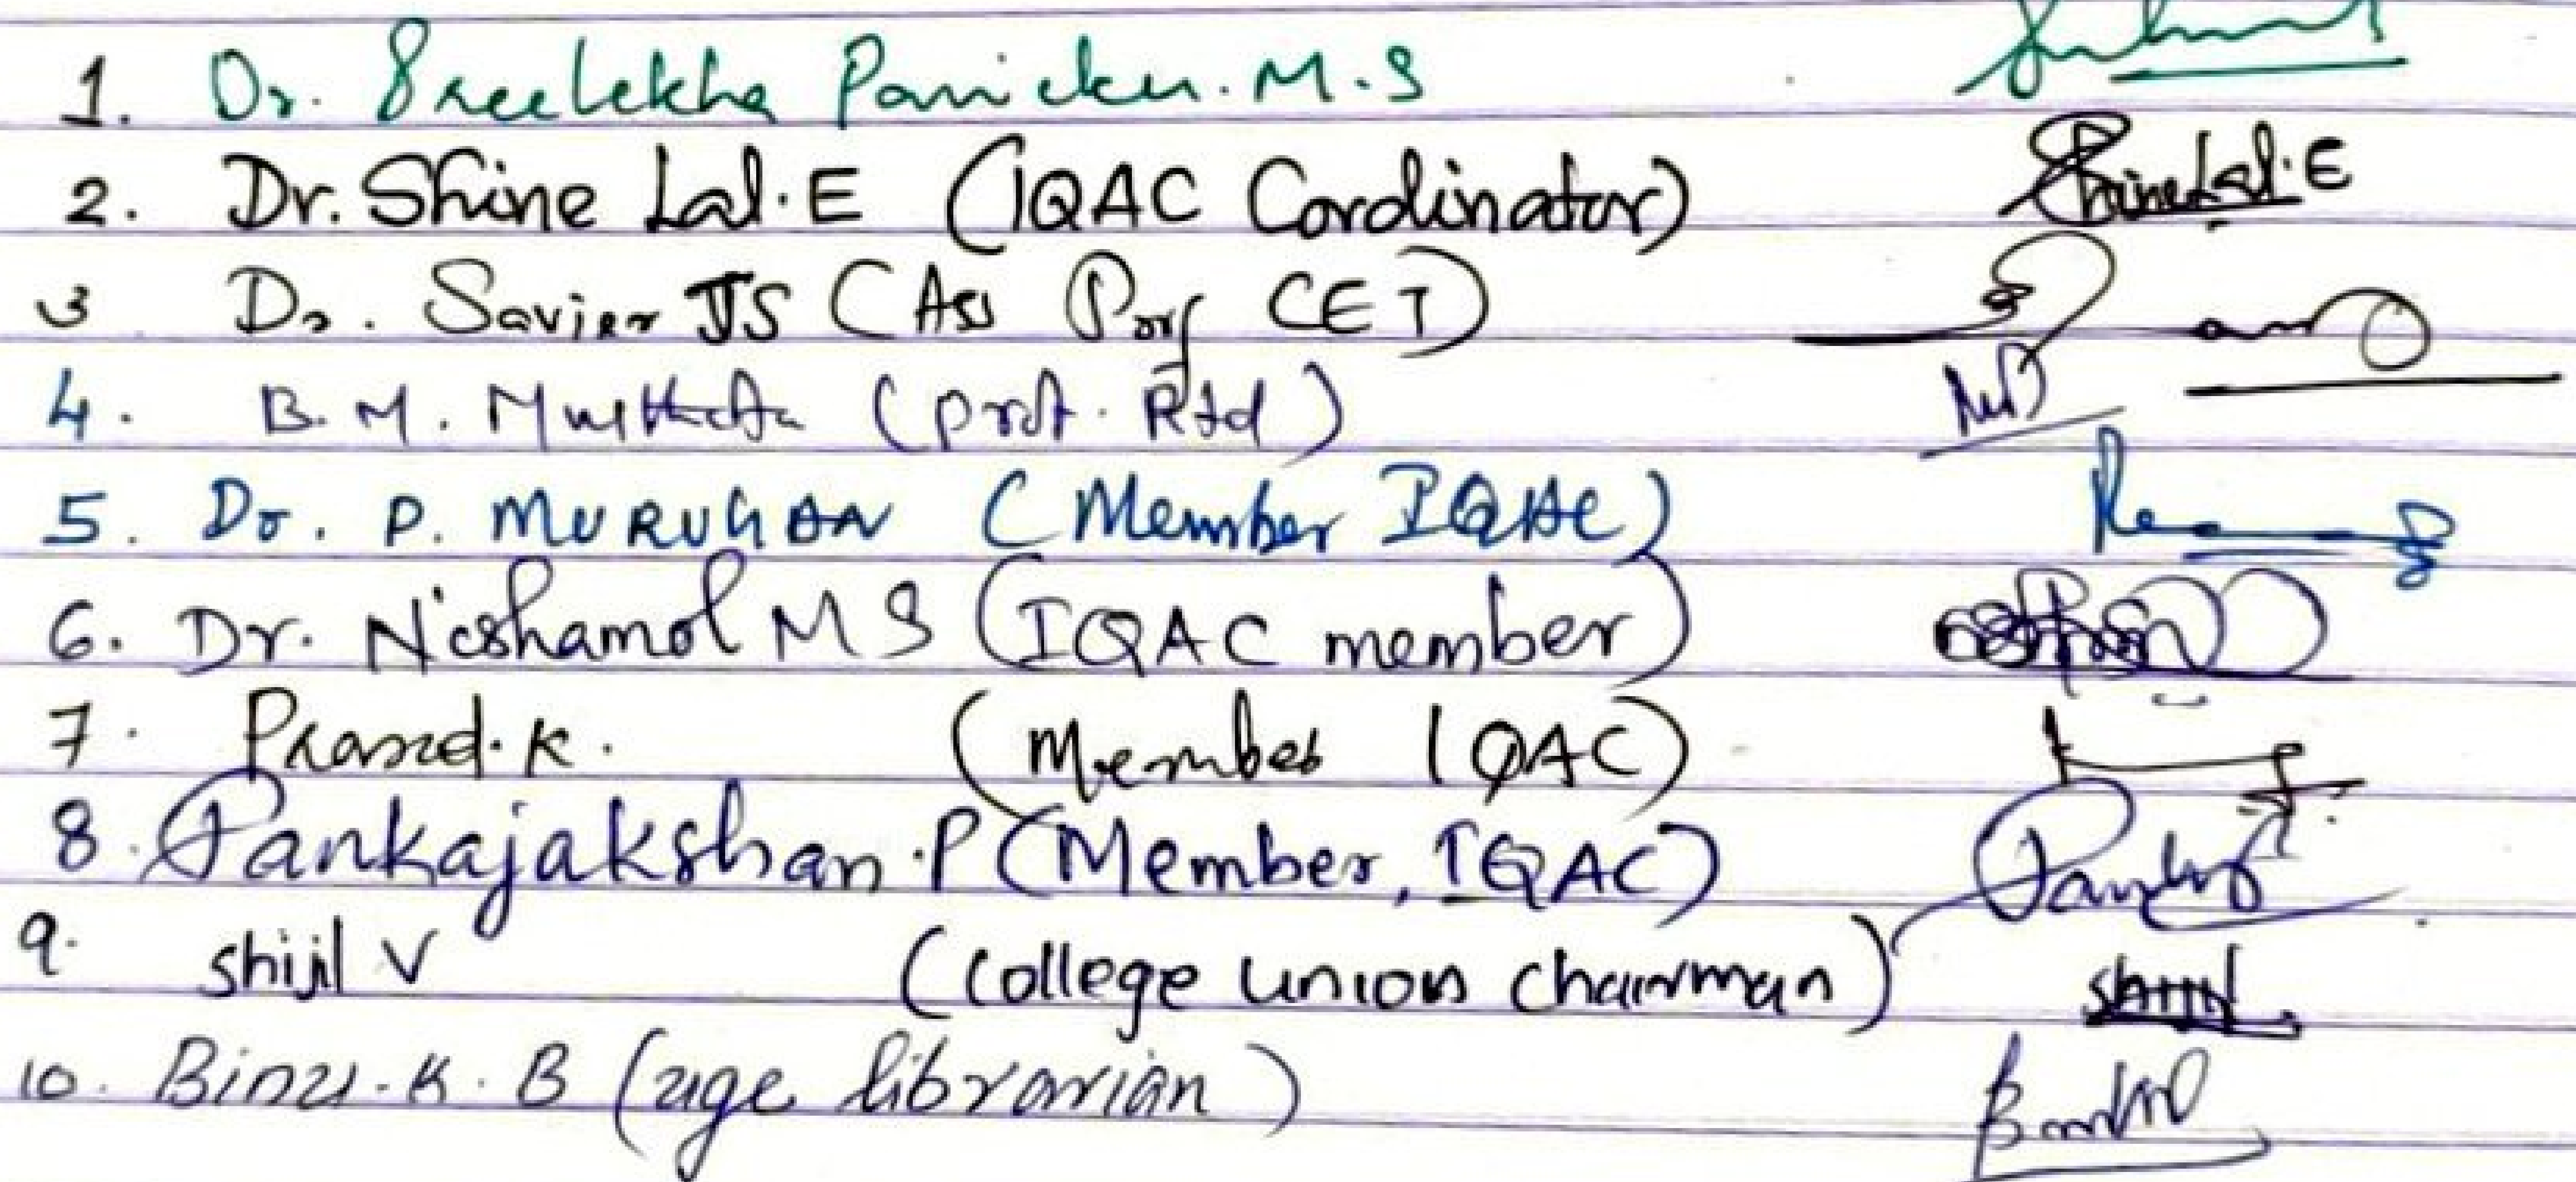 1. Dr. Sreelekha Panicker. M.S
2. Dr. Shine Lal. E (IQAC Cordinator) Shine Lal. E
3 Dr. Savier JS (Ass Prof CET)
4. B. M. (Prof. Rtd)
5. Dr. P. MURUGAN (Member IQAC)
6. Dr. Nishamol M S (IQAC member)
7. Prasad. K. (Member IQAC)
8. Pankajakshan. P (Member, IQAC)
9. Shijil V (College Union Chairman) Shijil
10. Binu. K. B (UGC librarian)